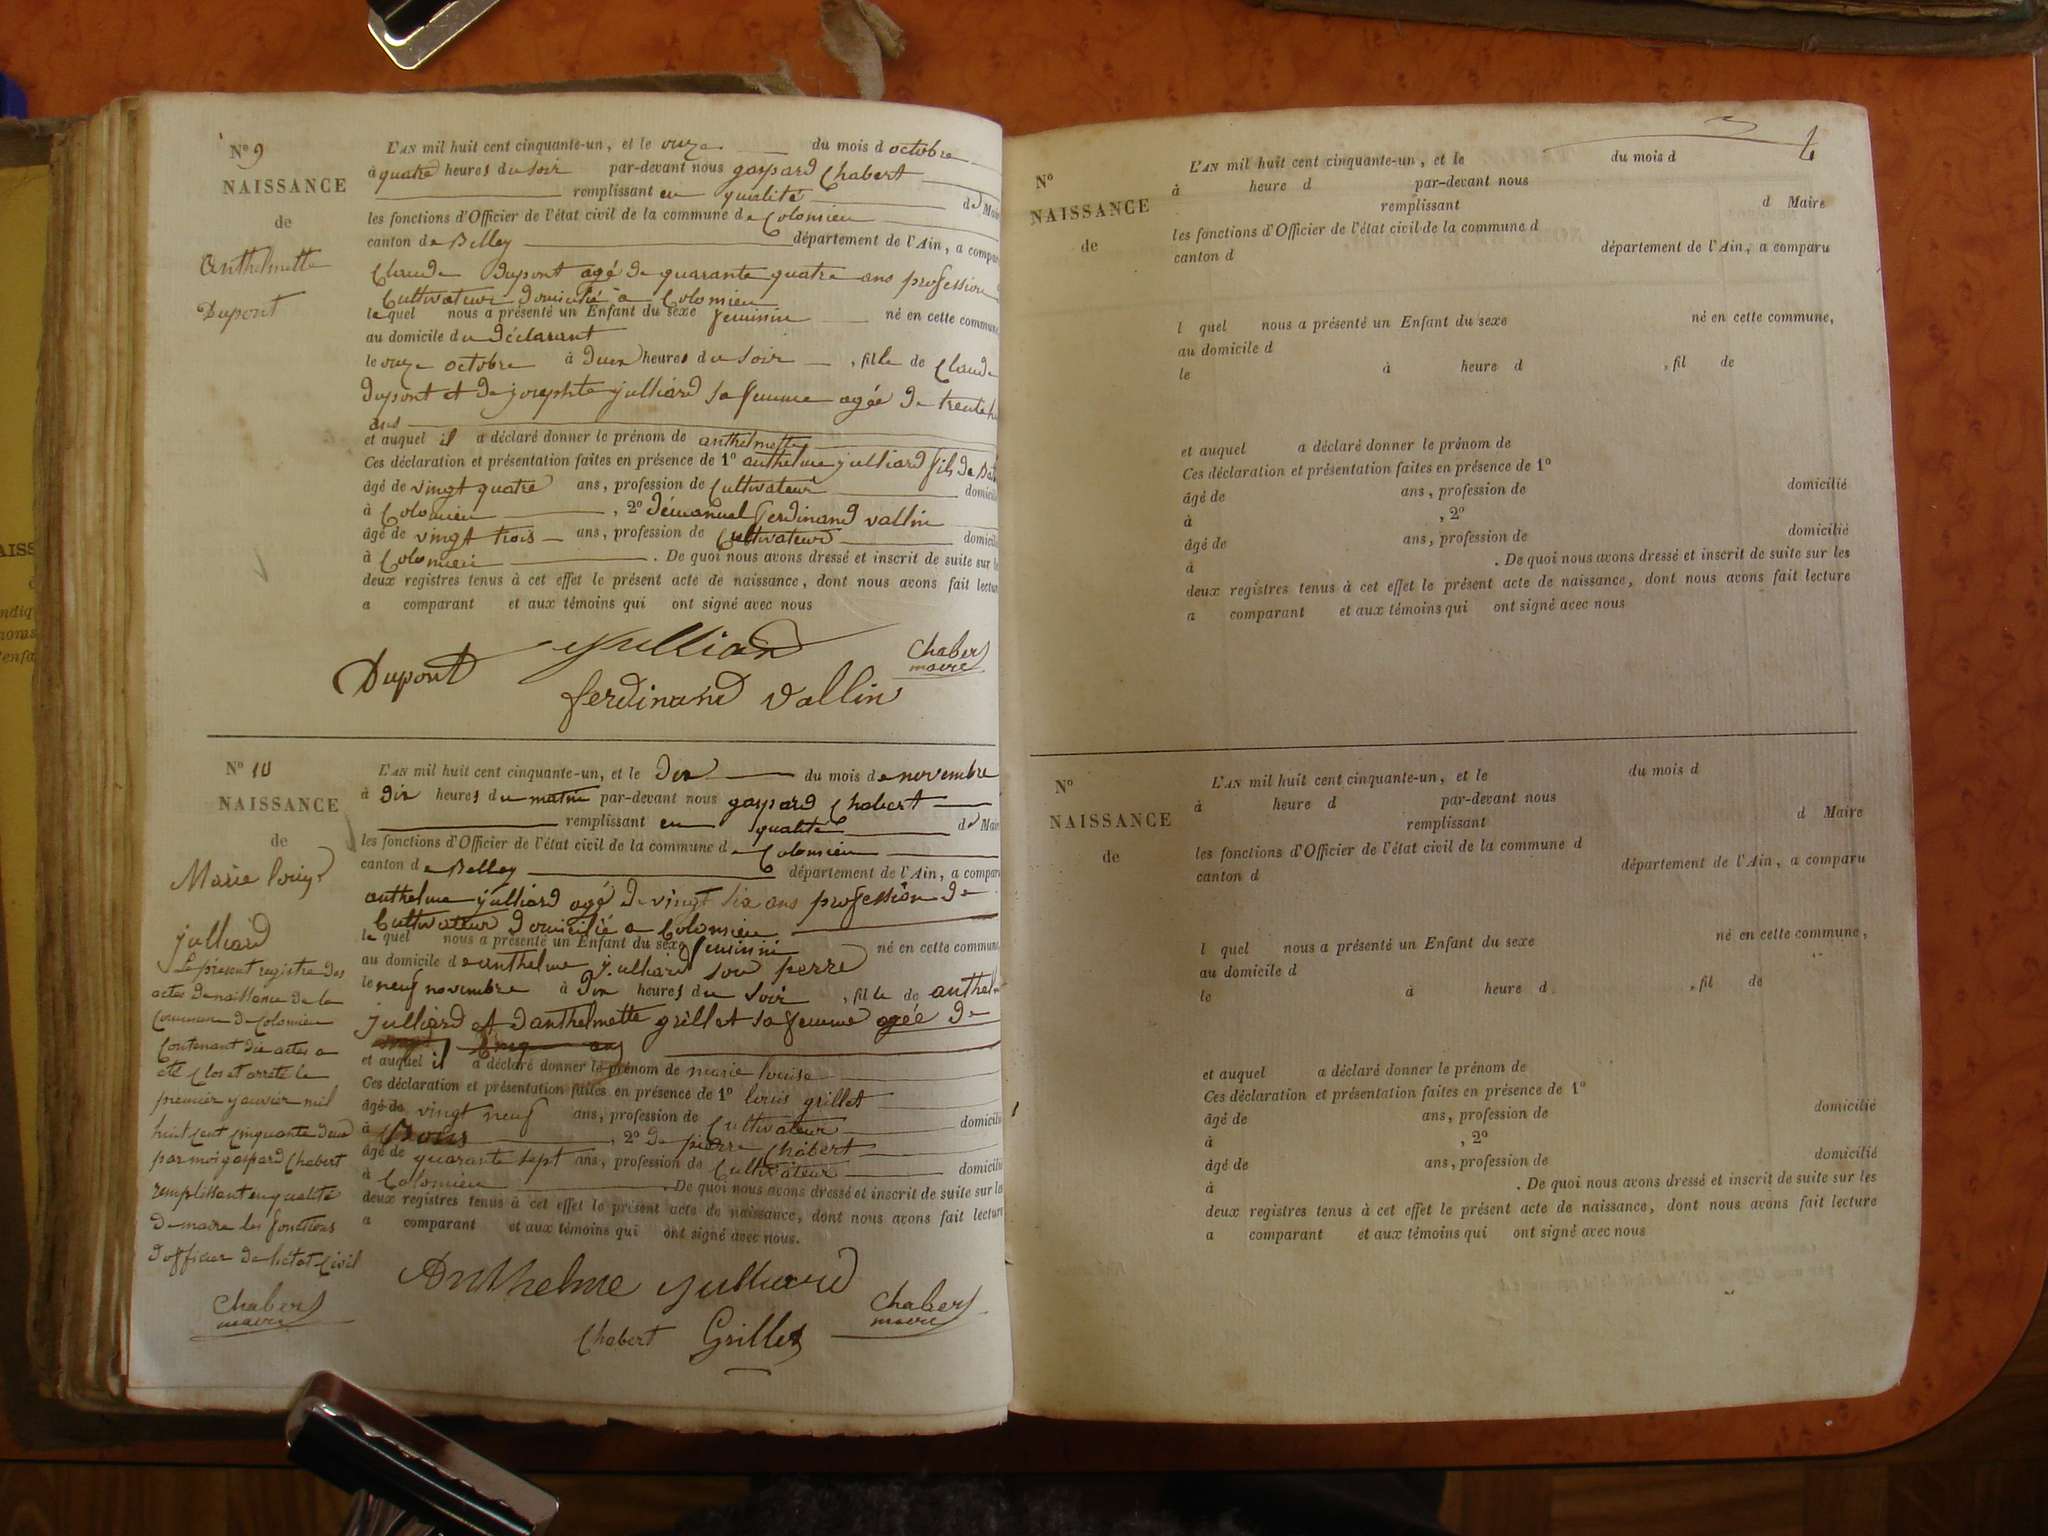 N° 9
NAISSANCE
de
Anthelmette
Dupont
L'AN mil huit cent cinquante-un, et le onze du mois d octobre
à quatre heures du soir par-devant nous gaspard Chabert
remplissant en qualité de Mai
les fonctions d'Officier de l'état civil de la commune de Colomieu
canton de Belley département de l'Ain, a compar
Claude Dupont agé de quarante quatre ans profession
Cultivateur domicilié a Colomieu
lequel nous a présenté un Enfant du sexe feminin né en cette commune
au domicile du déclarant
le onze octobre à deux heures du soir, fille de Claude
dupont et de josephte julliard sa femme agée de trente
ans
et auquel il a déclaré donner le prénom de anthelmette
Ces déclaration et présentation faites en présence de 1° anthelme julliard fils de
âgé de vingt quatre ans, profession de Cultivateur domicili
à Colomieu, 2° démanuel ferdinand vallin
âgé de vingt trois ans, profession de Cultivateur domicili
à Colomieu. De quoi nous avons dressé et inscrit de suite sur le
deux registres tenus à cet effet le présent acte de naissance, dont nous avons fait lectur
a comparant et aux témoins qui ont signé avec nous
Dupont Julliard Chabert
maire
ferdinand vallin
N° 10
NAISSANCE
de
Marie louise
julliard
Le présent registre des
actes de naissance de la
Commune de Colomieu
Contenant dix actes a
été clos et arrété le
premier janvier mil
huit cent cinquante deux
par moi gaspard Chabert
remplissant en qualité
de maire les fonctions
d'officier de l'état civil
Chabert
maire
L'AN mil huit cent cinquante-un, et le dix du mois de novembre
à dix heures du matin par-devant nous gaspard Chabert
remplissant en qualité de Mai
les fonctions d'Officier de l'état civil de la commune de Colomieu
canton de Belley département de l'Ain, a compar
anthelme julliard agé de vingt six ans profession de
Cultivateur domicilié a Colomieu
lequel nous a présenté un Enfant du sexe feminin né en cette commune
au domicile de anthelme julliard son perre
le neuf novembre à dix heures du soir, fille de anthelm
julliard et d'anthelmette grillet sa femme agée de
vingt cinq ans
et auquel il a déclaré donner le prénom de marie louise
Ces déclaration et présentation faites en présence de 1° louis grillet
âgé de vingt neuf ans, profession de Cultivateur domicilié
à, 2° de pierre Chabert
âgé de quarante sept ans, profession de Cultivateur domicilié
à Colomieu. De quoi nous avons dressé et inscrit de suite sur le
deux registres tenus à cet effet le présent acte de naissance, dont nous avons fait lecture
a comparant et aux témoins qui ont signé avec nous.
Anthelme julliard Chabert
maire
Chabert Grillet
N°
NAISSANCE
de
L'AN mil huit cent cinquante-un, et le du mois d
à heure d par-devant nous
remplissant d Maire
les fonctions d'Officier de l'état civil de la commune d
canton d département de l'Ain, a comparu
l quel nous a présenté un Enfant du sexe né en cette commune,
au domicile d
le à heure d, fil de
et auquel a déclaré donner le prénom de
Ces déclaration et présentation faites en présence de 1°
âgé de ans, profession de domicilié
à, 2°
âgé de ans, profession de domicilié
à. De quoi nous avons dressé et inscrit de suite sur les
deux registres tenus à cet effet le présent acte de naissance, dont nous avons fait lecture
a comparant et aux témoins qui ont signé avec nous
N°
NAISSANCE
de
L'AN mil huit cent cinquante-un, et le du mois d
à heure d par-devant nous
remplissant d Maire
les fonctions d'Officier de l'état civil de la commune d
canton d département de l'Ain, a comparu
l quel nous a présenté un Enfant du sexe né en cette commune,
au domicile d
le à heure d, fil de
et auquel a déclaré donner le prénom de
Ces déclaration et présentation faites en présence de 1°
âgé de ans, profession de domicilié
à, 2°
âgé de ans, profession de domicilié
à. De quoi nous avons dressé et inscrit de suite sur les
deux registres tenus à cet effet le présent acte de naissance, dont nous avons fait lecture
a comparant et aux témoins qui ont signé avec nous